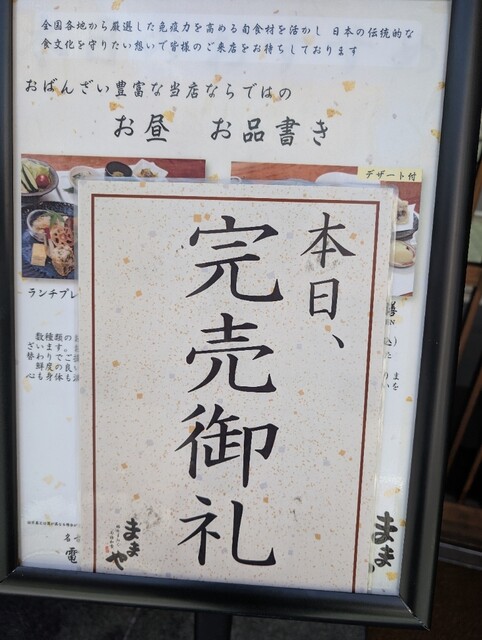 全国各地から厳選した免疫力を高める旬食材を活かし 日本の伝統的な
食文化を守りたい想いで皆様のご来店をお待ちしております
おばんざい豊富な当店ならではの
お昼 お品書き
デザート付
本日、
完売御礼
ままや
ランチプレ
数種類の
ざいます。
替わりでご
鮮度の良い
心も身体も
電
ままや